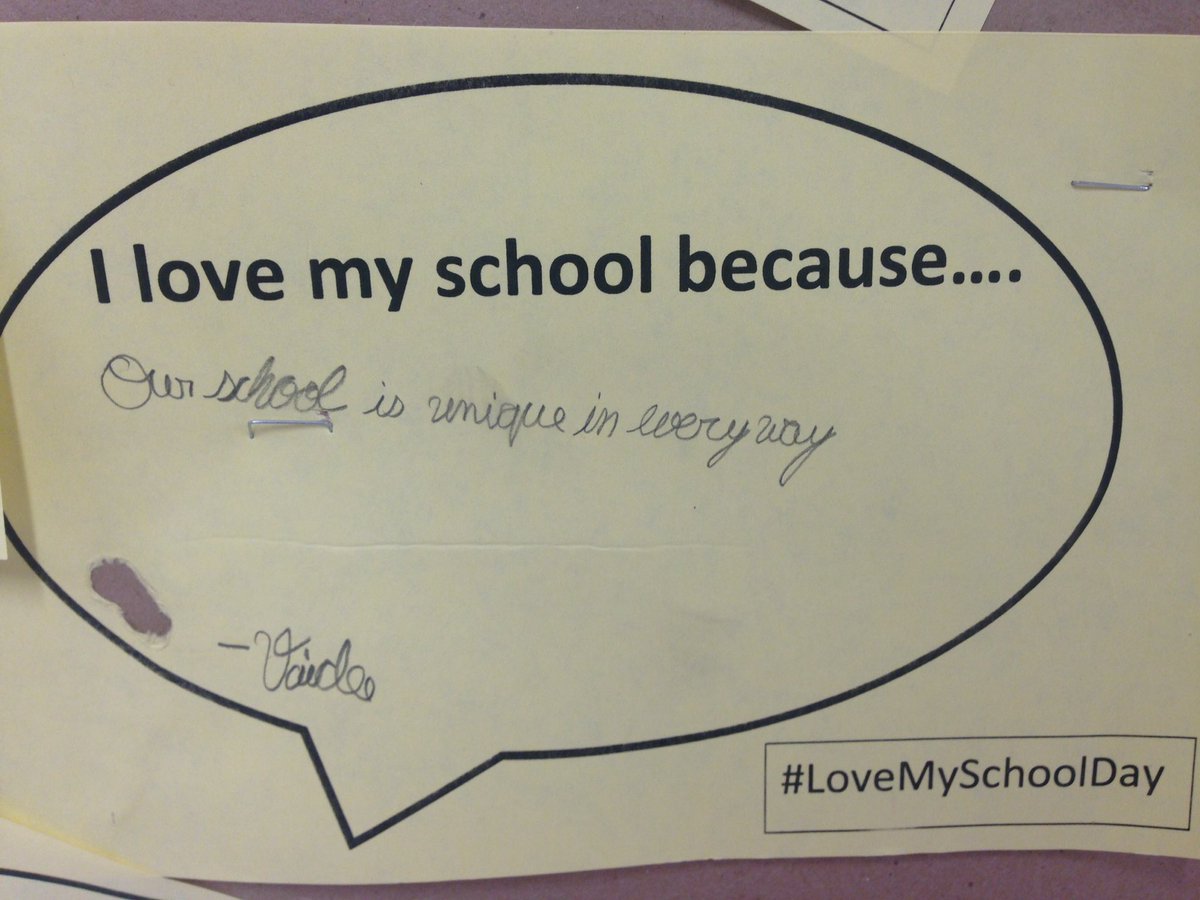 I love my school because....
Our school is unique in every way
- Vaidee
#LoveMySchoolDay